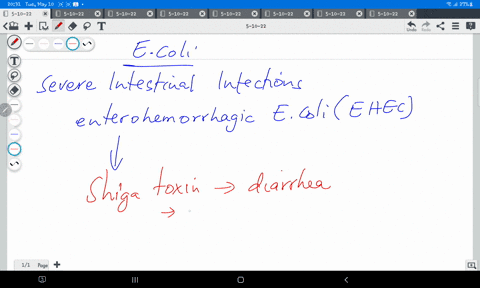 09:31 Tue, May 10
77%
5-10-22 5-10-22 5-10-22 5-10-22 5-10-22 5-10-22 5-10-22 5-10-22
5-10-22
Undo Redo
E.Coli
Severe Intestinal Infections
enterohemorrhagic E.Coli (EHEC)
↓
Shiga toxin → diarrhea
→
1/1 Page